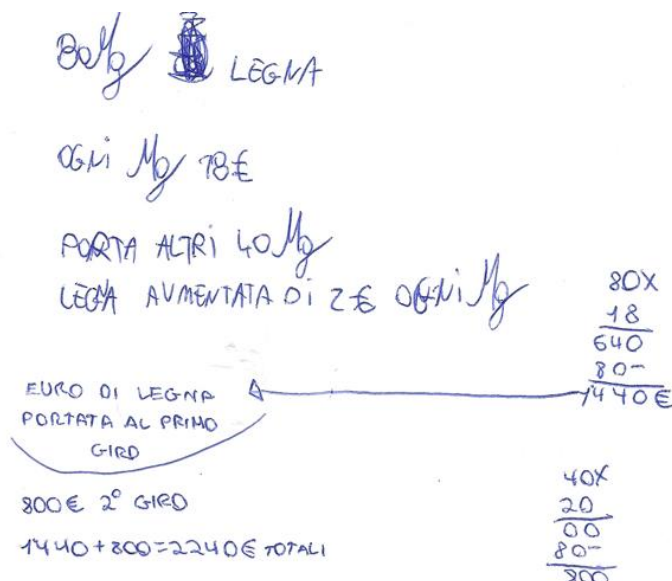 80 Mg LEGNA
OGNI Mg 18€
PORTA ALTRI 40 Mg
LEGNA AUMENTATA DI 2€ OGNI Mg
80X
18
640
80-
1440€
EURO DI LEGNA
PORTATA AL PRIMO
GIRO
800€ 2° GIRO
1440+800=2240€ TOTALI
40X
20
00
80-
800